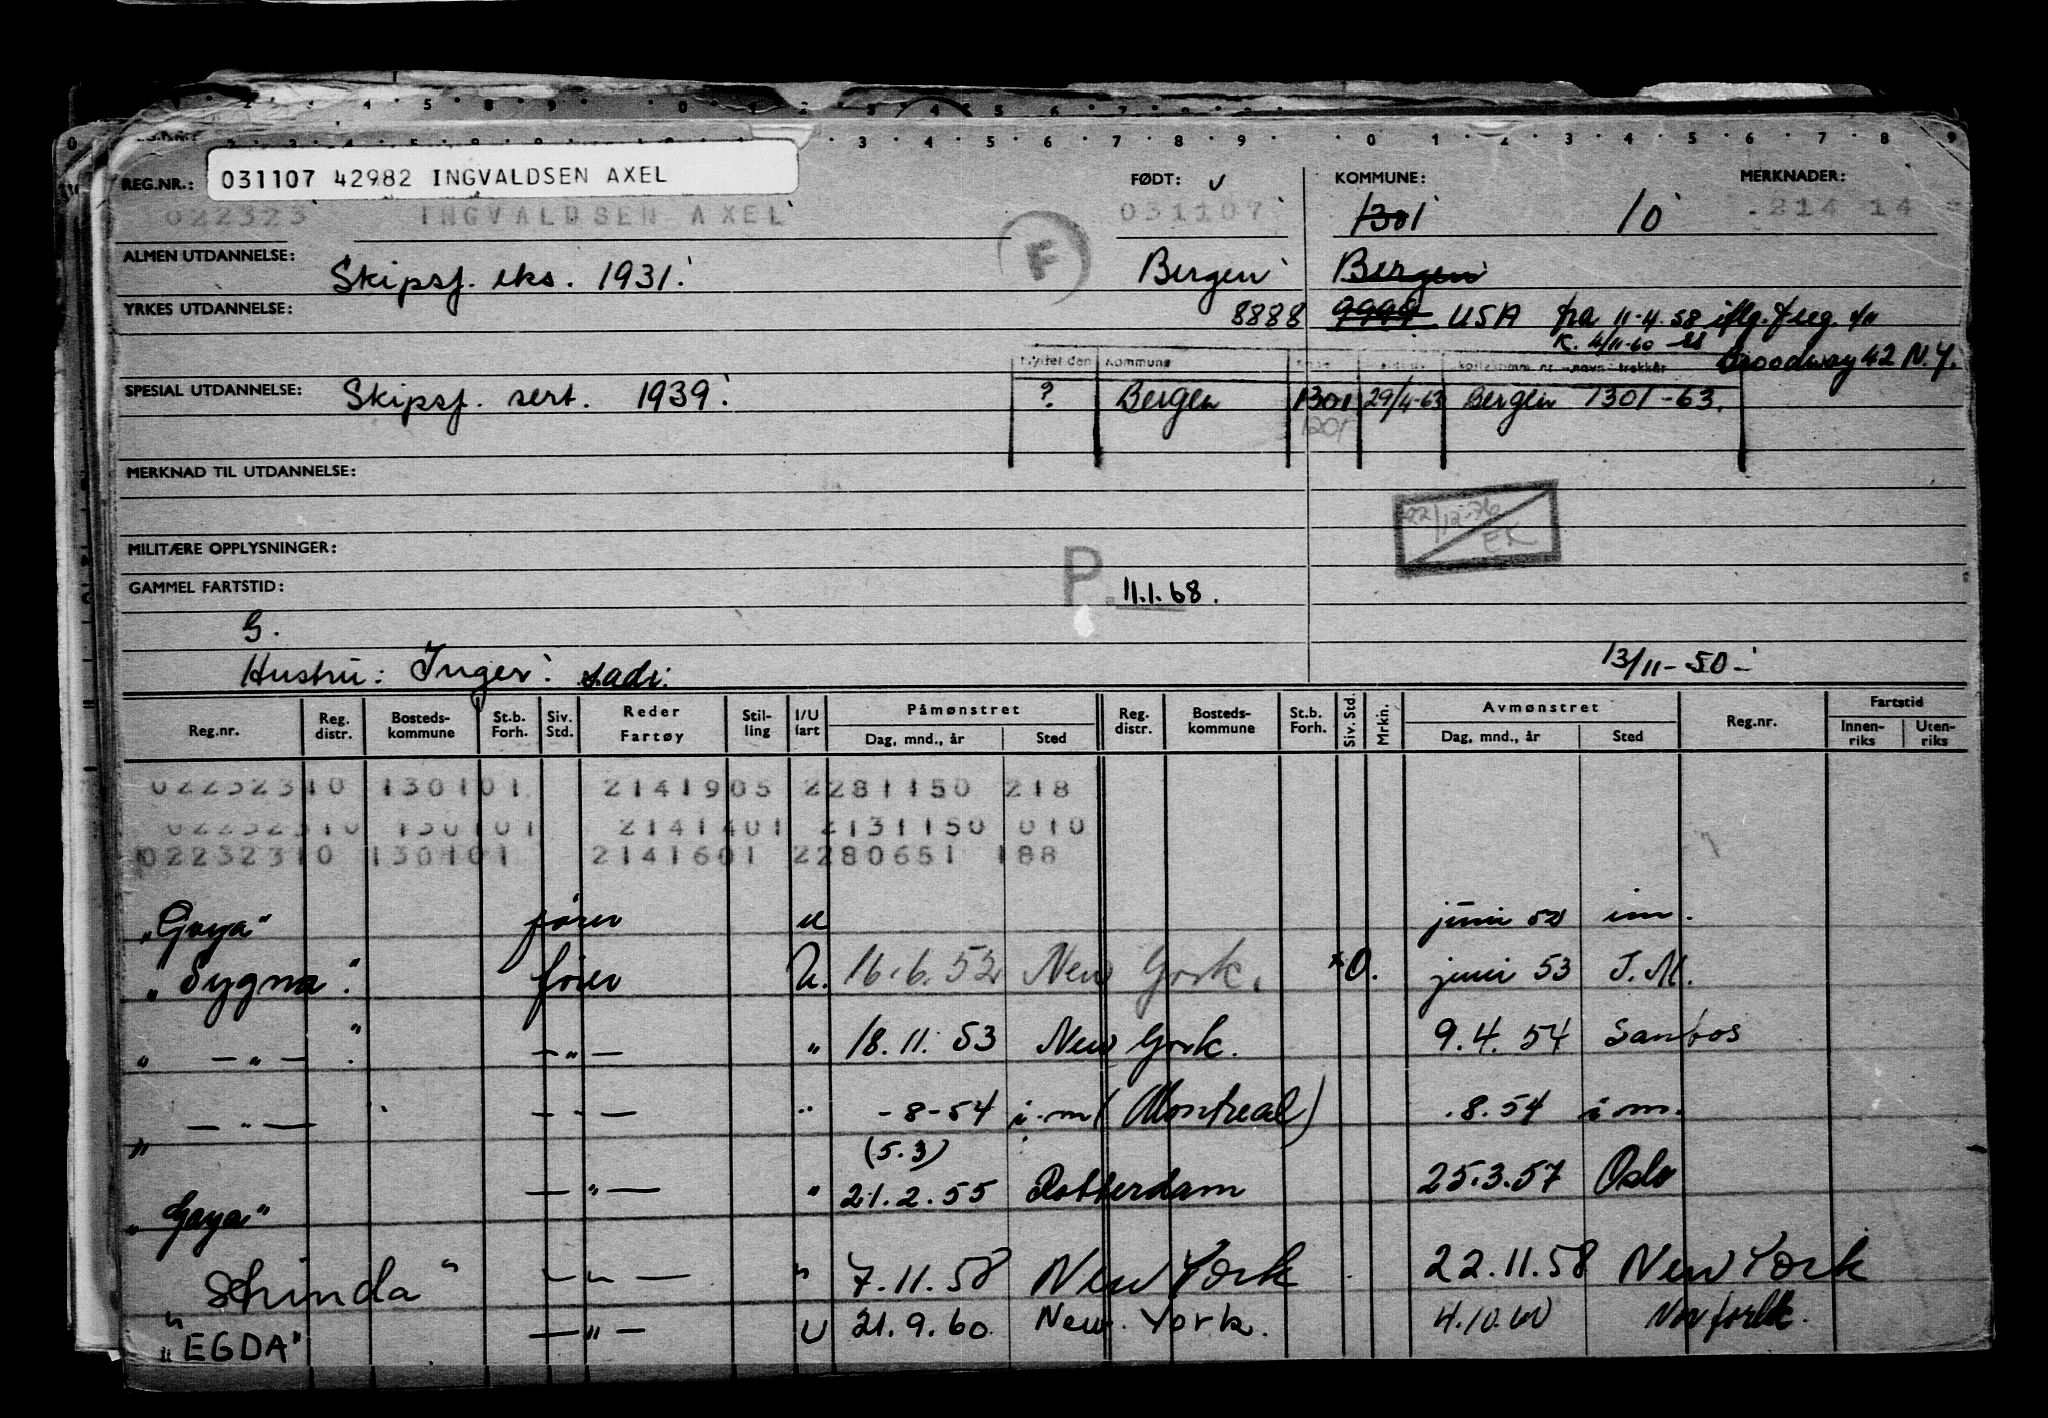 REG.NR.: 031107 42982 INGVALDSEN AXEL FØDT: KOMMUNE: MERKNADER:
022323 INGVALDSEN AXEL 031107 1301 10 214 14
ALMEN UTDANNELSE: Skipsf. eks. 1931. F Bergen Bergen
YRKES UTDANNELSE: 8888 9999 USA fra 11-4.58 iflg.
K. 4/11-60
Broodway 42 N.Y.
Flyttet den Kommune
SPESIAL UTDANNELSE: Skipsf. sert. 1939. ? Bergen 1301 29/4-63 Bergen 1301-63.
1201
MERKNAD TIL UTDANNELSE:
22/12-76 EK
MILITÆRE OPPLYSNINGER:
GAMMEL FARTSTID: P. 11.1.68.
G.
Hustru: Inger. s.adr. 13/11-50-
Reg.nr. Reg. distr. Bosteds-kommune St.b. Forh. Siv. Std. Reder Fartøy Stil-ling I/U fart Påmønstret Dag, mnd., år Sted Reg. distr. Bosteds-kommune St.b. Forh. Siv. Std. Mrkn. Avmønstret Dag, mnd., år Sted Reg.nr. Fartstid Innen-riks Uten-riks
02232310 130101 2141905 2281150 218
02232310 130101 2141401 2131150 010
02232310 130101 2141601 2280651 188
"Goya" fører u juni 52 im.
"Sygna". fører U. 16.6.52 New York. *O. juni 53 I.M.
" — " — " — " — " 18.11.53 New York. 9.4.54 Santos
" — " — — " — " -8-54 i.m (Montreal) .8.54 i m.
(5.3)
"Goya" — " — " 21.2.55 Rotterdam 25.3.57 Oslo
"Shinda" — " — " 7.11.58 New York 22.11.58 New York
"EGDA" — " — U 21.9.60 New York. 4.10.60 Norfolk.